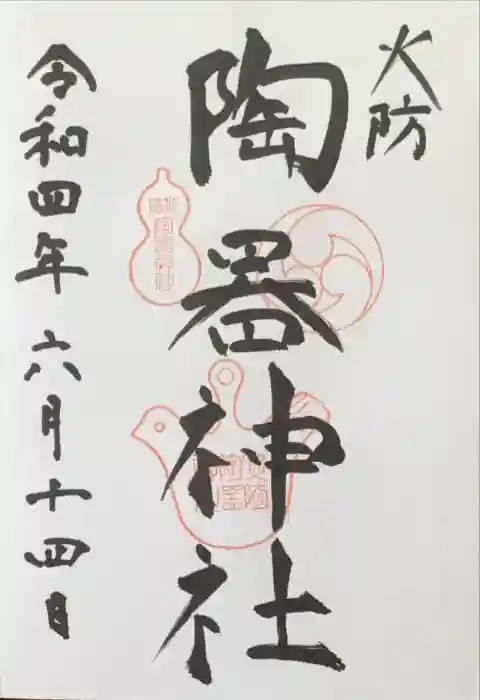 火防
陶器神社
令和四年六月十四日